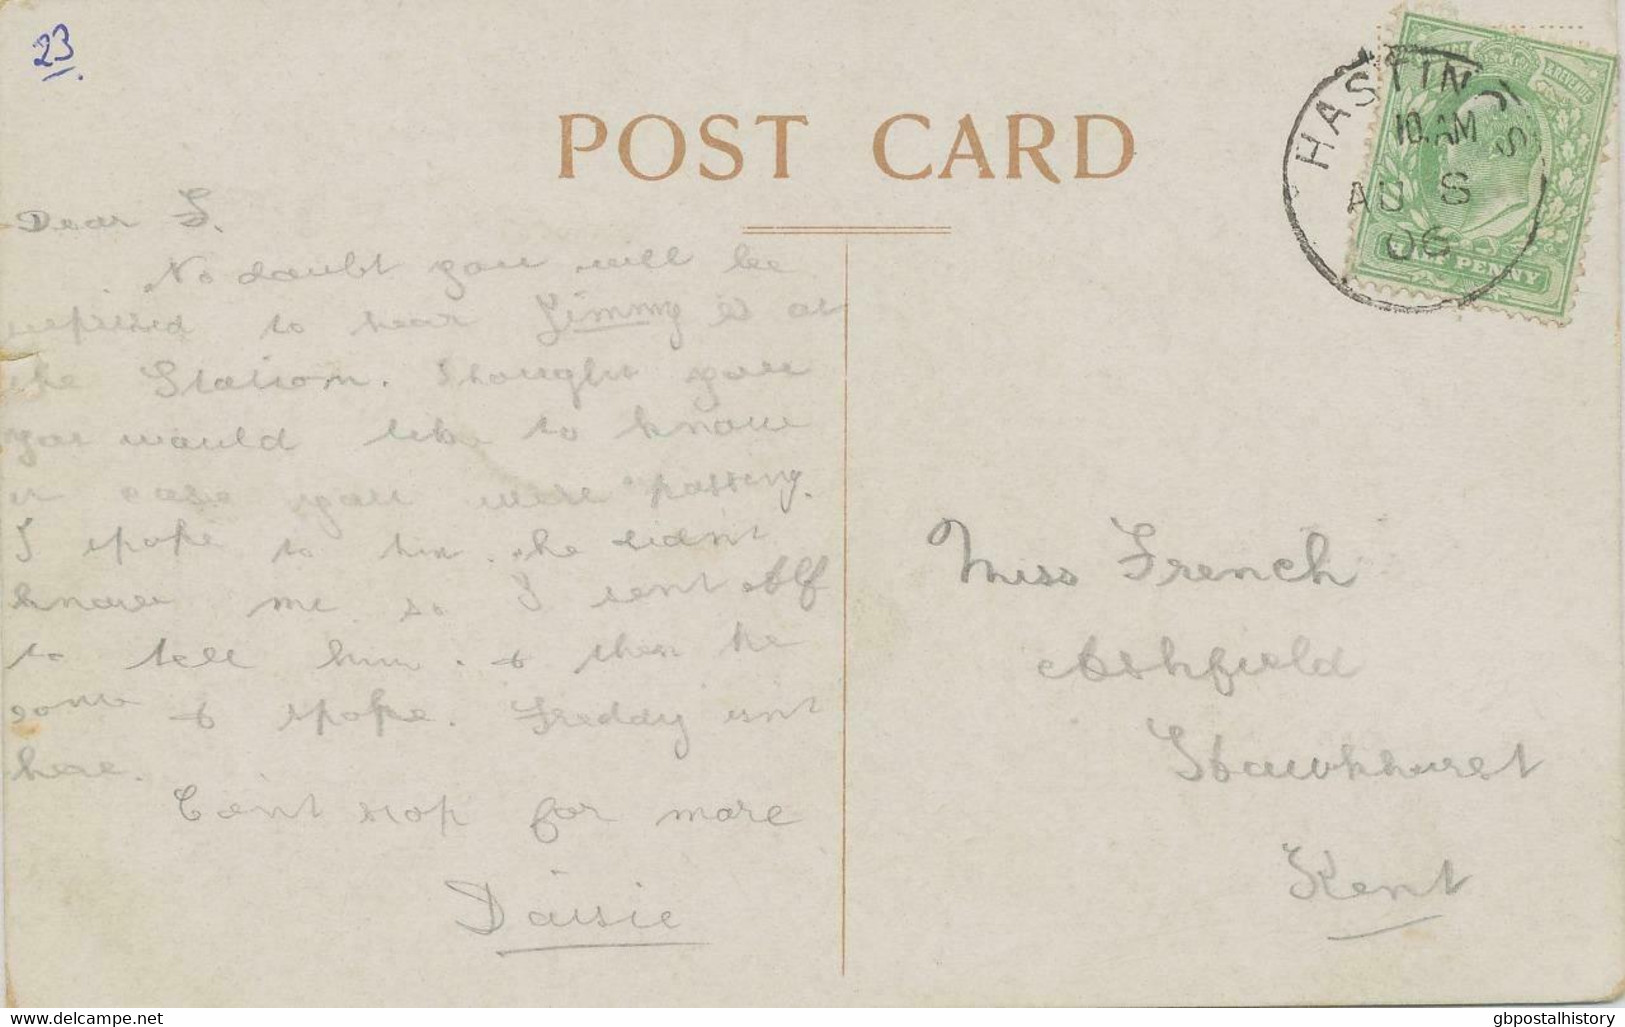 23
POST CARD
HASTINGS
10. AM
AU 8
06
REVENUE
PENNY
Dear F.
No doubt you will be
surprised to hear Jimmy is at
the Station. Thought you
you would like to know
in case you were passing.
I spoke to him. he didnt
know me so I sent Alf
to tell him. & then he
come & spoke. Freddy isnt
here.
Cant stop for more
Daisie
Miss French
Ashfield
Hawkhurst
Kent
gbpostalhistory
www.delcampe.net